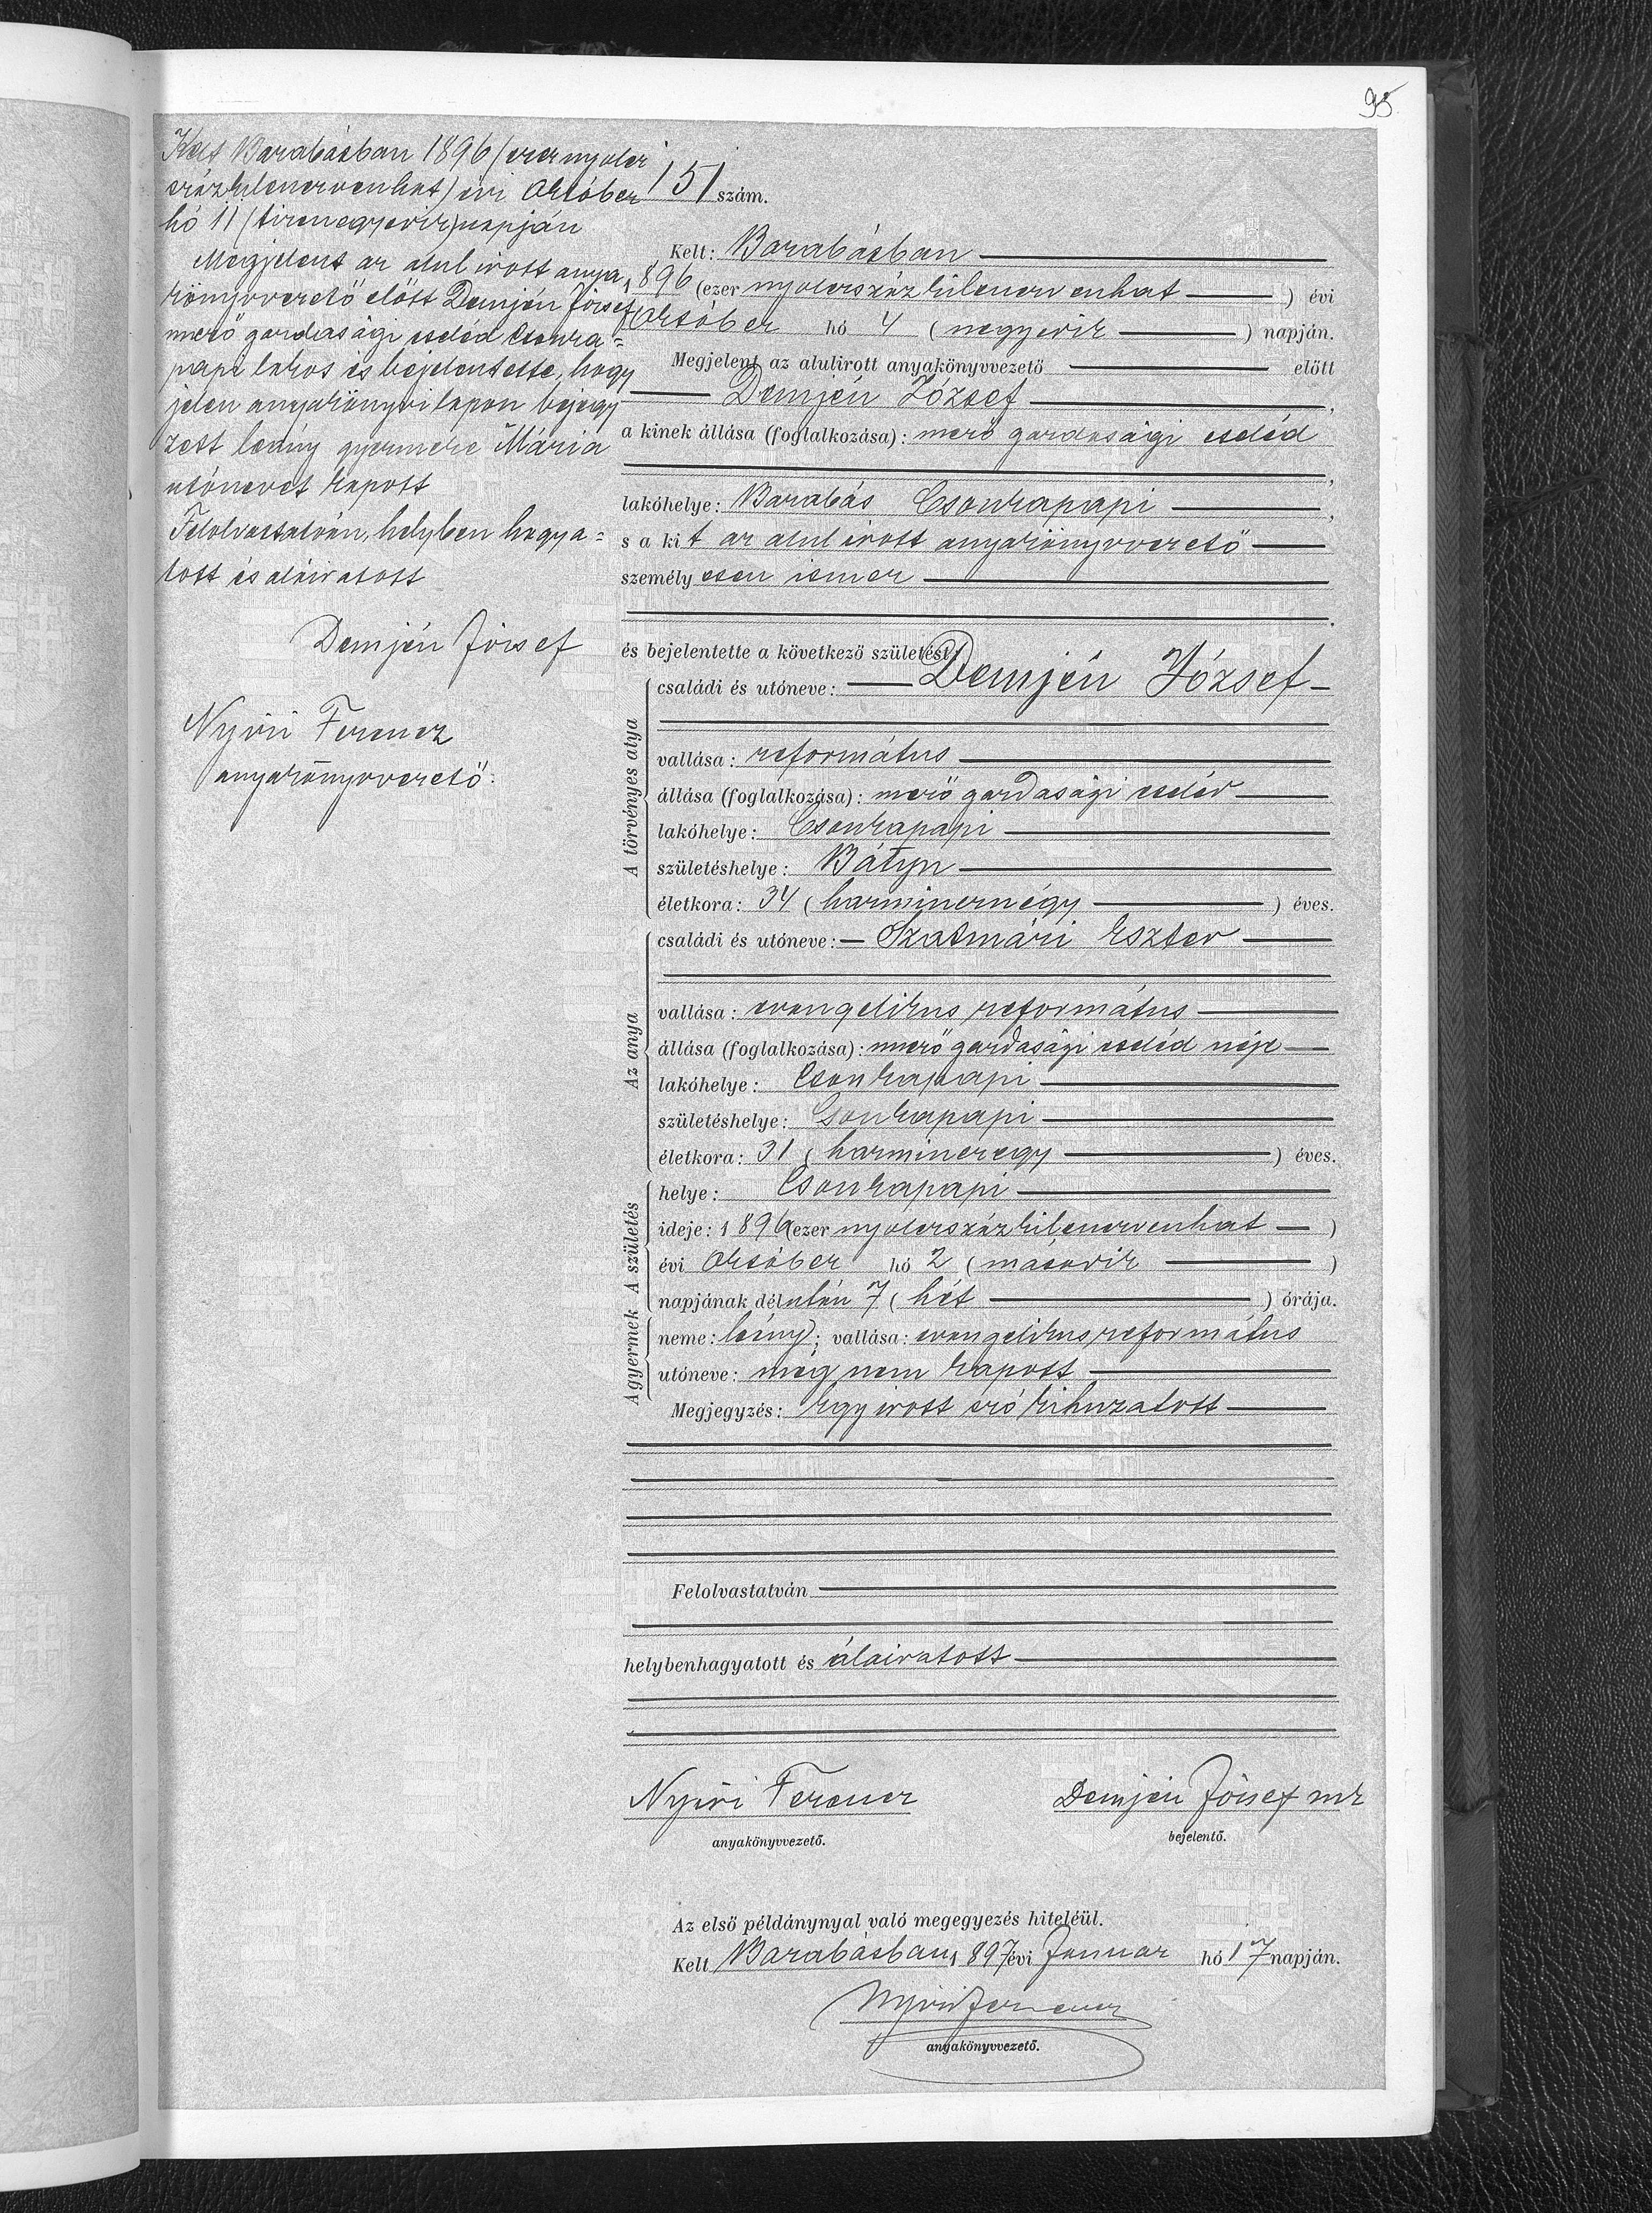 95
Kelt Barabásban 1896 (ezernyolcz
százkilenczvenhat) évi Október
hó 11 (tizenegyedik) napján
Megjelent az alul irott anya
könyvvezető előtt Demjén József
mező gazdasági cseléd Csonka=
papi lakos és bejelentette, hogy
jelen anyakönyvi lapon bejegy
zett leány gyermeke Mária
utónevet kapott
Felolvastatván, helyben hagya=
tott és aláiratott
Demjén József
Nyiri Ferencz
anyakönyvvezető.
151 szám.
Kelt: Barabásban
1896 (ezer nyolczszázkilenczvenhat) évi
Október hó 4 (negyedik) napján.
Megjelent az alulirott anyakönyvvezető előtt
Demjén József,
a kinek állása (foglalkozása): mező gazdasági cseléd
,
lakóhelye: Barabás Csonkapapi,
s a kit az alul irott anyakönyvvezető
személyesen ismer
.
és bejelentette a következő születést:
A törvényes atya
családi és utóneve: Demjén József
vallása: református
állása (foglalkozása): mező gazdasági cseléd
lakóhelye: Csonkapapi
születéshelye: Bátyu
életkora: 34 (harmincznégy) éves.
Az anya
családi és utóneve: Szatmári Eszter
vallása: evangelikus református
állása (foglalkozása): mező gazdasági cseléd neje
lakóhelye: Csonkapapi
születéshelye: Csonkapapi
életkora: 31 (harminczegy) éves.
A születés
helye: Csonkapapi
ideje: 1896 (ezer nyolczszázkilenczvenhat)
évi Október hó 2 (második)
napjának délután 7 (hét) órája.
A gyermek
neme: leány; vallása: evangelikus református
utóneve: még nem kapott
Megjegyzés: Egy irott szó kihuzatott
Felolvastatván
helybenhagyatott és aláiratott
Nyiri Ferencz
anyakönyvvezető.
Demjén József mk
bejelentő.
Az első példánynyal való megegyezés hiteléül.
Kelt Barabásban, 1897 évi Januar hó 17 napján.
Nyiri Ferencz
anyakönyvvezető.